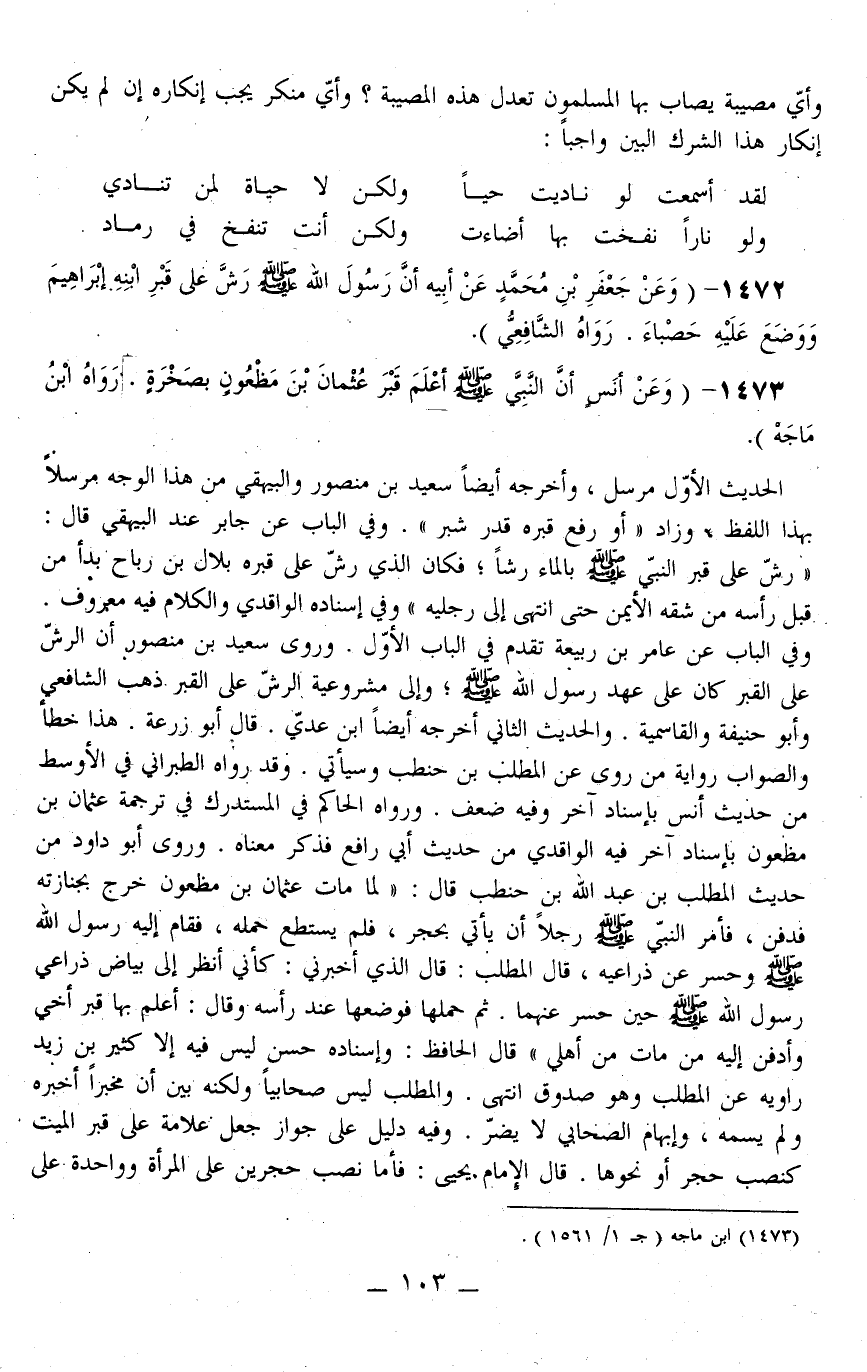 وأيّ مصيبة يصاب بها المسلمون تعدل هذه المصيبة ؟ وأيّ منكر يجب إنكاره إن لم يكن
إنكار هذا الشرك البين واجباً :
لقد أسمعت لو ناديت حيـاً ولكـن لا حيـاة لمن تنـــادي
ولو ناراً نفـخت بها أضاءت ولكـن أنت تنفـخ في رمـاد .
١٤٧٢- ( وَعَنْ جَعْفَرِ بْنِ مُحَمَّدٍ عَنْ أبيه أنَّ رَسُولَ الله ﷺ رَشَّ على قَبْرِ ابْنِهِ إبْرَاهِيمَ
وَوَضَعَ عَلَيْهِ حَصْباءَ . رَوَاهُ الشَّافِعِيُّ ).
١٤٧٣- ( وَعَنْ أنَسٍ أنَّ النَّبِيَّ ﷺ أعْلَمَ قَبْرَ عُثْمانَ بْنَ مَظْعُونٍ بصَخْرَةٍ . رَوَاهُ ابْنُ
مَاجَهْ ).
الحديث الأوّل مرسل ، وأخرجه أيضاً سعيد بن منصور والبيهقي من هذا الوجه مرسلاً
بهذا اللفظ ، وزاد « أو رفع قبره قدر شبر » . وفي الباب عن جابر عند البيهقي قال :
« رشّ على قبر النبيّ ﷺ بالماء رشاً ؛ فكان الذي رشّ على قبره بلال بن رباح بدأ من
قبل رأسه من شقه الأيمن حتى انتهى إلى رجليه » وفي إسناده الواقدي والكلام فيه معروف .
وفي الباب عن عامر بن ربيعة تقدم في الباب الأوّل . وروى سعيد بن منصور أن الرشّ
على القبر كان على عهد رسول الله ﷺ ؛ وإلى مشروعية الرشّ على القبر ذهب الشافعي
وأبو حنيفة والقاسمية . والحديث الثاني أخرجه أيضاً ابن عديّ . قال أبو زرعة . هذا خطأ
والصواب رواية من روي عن المطلب بن حنطب وسيأتي . وقد رواه الطبراني في الأوسط
من حديث أنس بإسناد آخر وفيه ضعف . ورواه الحاكم في المستدرك في ترجمة عثمان بن
مظعون بإسناد آخر فيه الواقدي من حديث أبي رافع فذكر معناه . وروى أبو داود من
حديث المطلب بن عبد الله بن حنطب قال : « لما مات عثمان بن مظعون خرج بجنازته
فدفن ، فأمر النبيّ ﷺ رجلاً أن يأتي بحجر ، فلم يستطع حمله ، فقام إليه رسول الله
ﷺ وحسر عن ذراعيه ، قال المطلب : قال الذي أخبرني : كأني أنظر إلى بياض ذراعي
رسول الله ﷺ حين حسر عنهما . ثم حملها فوضعها عند رأسه وقال : أعلم بها قبر أخي
وأدفن إليه من مات من أهلي » قال الحافظ : وإسناده حسن ليس فيه إلا كثير بن زيد
راويه عن المطلب وهو صدوق انتهى . والمطلب ليس صحابياً ولكنه بين أن مخبراً أخبره
ولم يسمه ، وإبهام الصحابي لا يضرّ . وفيه دليل على جواز جعل علامة على قبر الميت
كنصب حجر أو نحوها . قال الإمام يحيى : فأما نصب حجرين على المرأة وواحدة على
(١٤٧٣) ابن ماجه ( جـ ١/ ١٥٦١ ) .
ـ ١٠٣ ـ